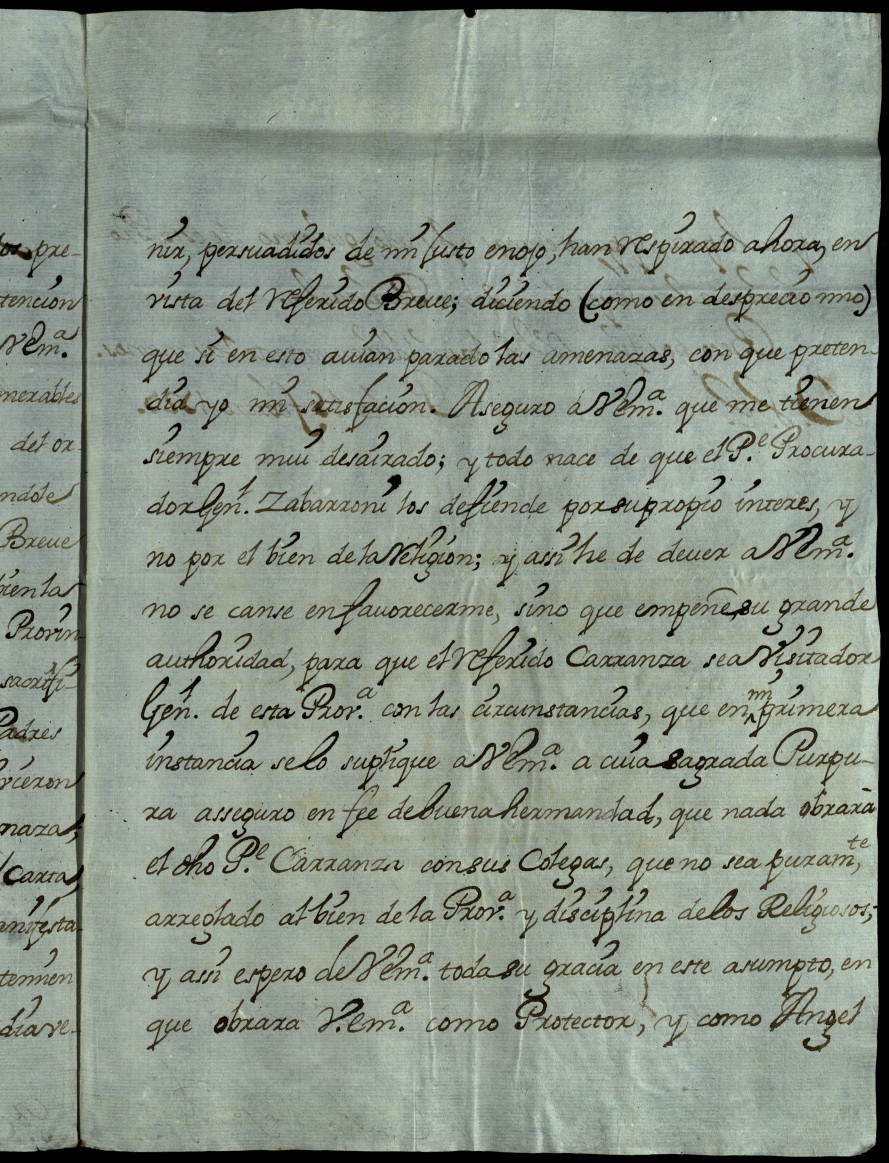 los pre-
tencion
V Em.ª
nerables
del or-
ndole
Breue
Provin-
sacrifi-
Padres
naza;
carta,
anifesta-
dia ve-
nir, persuadidos de mi justo enojo, han respirado ahora, en
vista del referido Breue; diciendo (como en desprecio mio)
que si en esto auian parado las amenazas, con que preten-
dia yo mi satisfacion. Aseguro á V Em.ª que me tienen
siempre mui desairado; y todo nace de que el P.e Procura-
dor Gen.l Zabarroni los defiende por su propio interes, y
no por el bien de la Religion; y assi he de deuer a V Em.ª
no se canse en favorecerme, sino que empeñe su grande
authoridad, para que el referido Carranza sea Visitador
Gen.l de esta Prov.ª con las circunstancias, que en mi primera
instancia se lo suplique a V Em.ª a cuia sagrada Purpu-
ra asseguro en fee de buena hermandad, que nada obrará
el dho P.e Carranza con sus Colegas, que no sea puram.te
arreglado al bien de la Prov.ª y disciplina de los Religiosos;
y assi espero de V Em.ª toda su gracia en este asumpto, en
que obrara V. Em.ª como Protector, y como Angel